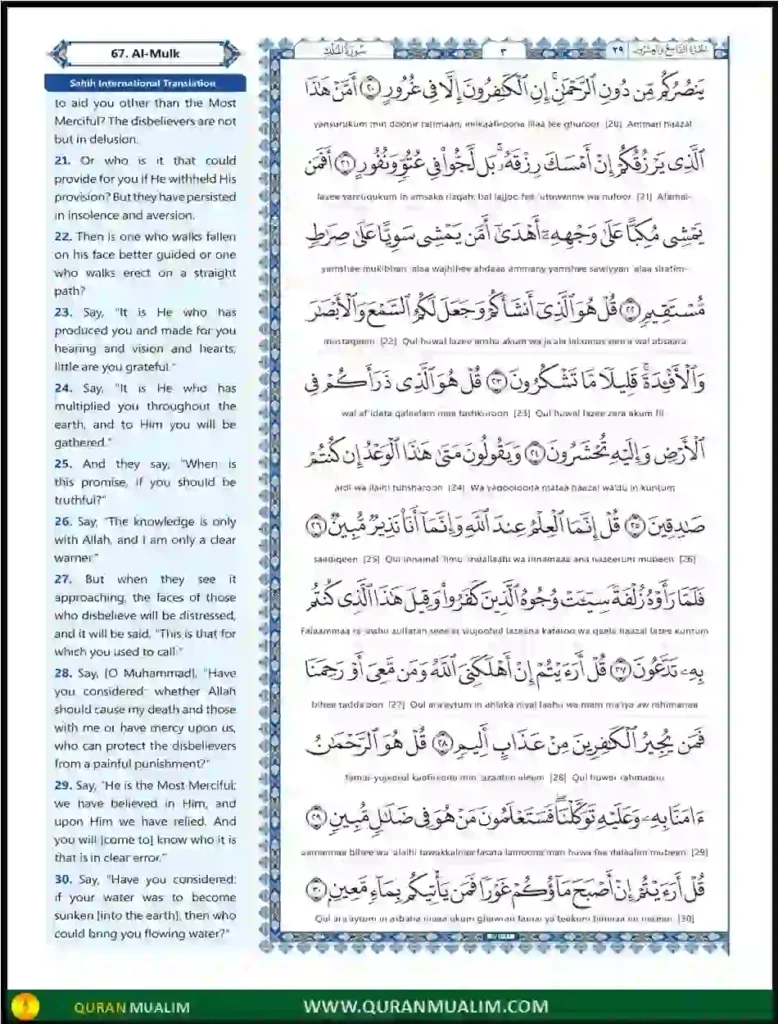 67. Al-Mulk
Sahih International Translation
to aid you other than the Most
Merciful? The disbelievers are not
but in delusion.
21. Or who is it that could
provide for you if He withheld His
provision? But they have persisted
in insolence and aversion.
22. Then is one who walks fallen
on his face better guided or one
who walks erect on a straight
path?
23. Say, "It is He who has
produced you and made for you
hearing and vision and hearts;
little are you grateful."
24. Say, "It is He who has
multiplied you throughout the
earth, and to Him you will be
gathered."
25. And they say, "When is
this promise, if you should be
truthful?"
26. Say, "The knowledge is only
with Allah, and I am only a clear
warner."
27. But when they see it
approaching, the faces of those
who disbelieve will be distressed,
and it will be said, "This is that for
which you used to call."
28. Say, [O Muhammad], "Have
you considered: whether Allah
should cause my death and those
with me or have mercy upon us,
who can protect the disbelievers
from a painful punishment?"
29. Say, "He is the Most Merciful;
we have believed in Him, and
upon Him we have relied. And
you will [come to] know who it is
that is in clear error."
30. Say, "Have you considered:
if your water was to become
sunken [into the earth], then who
could bring you flowing water?"
سورة الملك
٣
٢٩
الجزء التاسع والعشرون
يَنصُرُكُم مِّن دُونِ ٱلرَّحْمَٰنِ ۚ إِنِ ٱلْكَٰفِرُونَ إِلَّا فِى غُرُورٍ ٢٠ أَمَّنْ هَٰذَا
yansurukum min doonir rahmaan; inilkaafiroona illaa fee ghuroor [20] Amman haazal
ٱلَّذِى يَرْزُقُكُمْ إِنْ أَمْسَكَ رِزْقَهُۥ ۚ بَل لَّجُّوا۟ فِى عُتُوٍّ وَنُفُورٍ ٢١ أَفَمَن
lazee yarzuqukum in amsaka rizqah; bal lajjoo fee 'utuwwinw wa nufoor [21] Afamai-
يَمْشِى مُكِبًّا عَلَىٰ وَجْهِهِۦٓ أَهْدَىٰٓ أَمَّن يَمْشِى سَوِيًّا عَلَىٰ صِرَٰطٍ
yamshee mukibban 'alaa wajhihee ahdaaa ammany yamshee sawiyyan 'alaa siratim-
مُّسْتَقِيمٍ ٢٢ قُلْ هُوَ ٱلَّذِىٓ أَنشَأَكُمْ وَجَعَلَ لَكُمُ ٱلسَّمْعَ وَٱلْأَبْصَٰرَ
mustaqeem [22] Qul huwal lazee ansha akum wa ja'ala lakumus sam'a wal absaara
وَٱلْأَفْـِٔدَةَ ۖ قَلِيلًا مَّا تَشْكُرُونَ ٢٣ قُلْ هُوَ ٱلَّذِى ذَرَأَكُمْ فِى
wal af'idata qaleelam maa tashkuroon [23] Qul huwal lazee zara akum fil
ٱلْأَرْضِ وَإِلَيْهِ تُحْشَرُونَ ٢٤ وَيَقُولُونَ مَتَىٰ هَٰذَا ٱلْوَعْدُ إِن كُنتُمْ
ardi wa ilaihi tuhsharoon [24] Wa yaqooloona mataa haazal wa'du in kuntum
صَٰدِقِينَ ٢٥ قُلْ إِنَّمَا ٱلْعِلْمُ عِندَ ٱللَّهِ وَإِنَّمَآ أَنَا۠ نَذِيرٌ مُّبِينٌ ٢٦
saadiqeen [25] Qul innamal 'ilmu 'indallaahi wa innamaaa ana nazeerum mubeen [26]
فَلَمَّا رَأَوْهُ زُلْفَةً سِيٓـَٔتْ وُجُوهُ ٱلَّذِينَ كَفَرُوا۟ وَقِيلَ هَٰذَا ٱلَّذِى كُنتُم
Falaammaa ra-awhu zulfatan seee'at wujoohul lazeena kafaroo wa qeela haazal lazee kuntum
بِهِۦ تَدَّعُونَ ٢٧ قُلْ أَرَءَيْتُمْ إِنْ أَهْلَكَنِىَ ٱللَّهُ وَمَن مَّعِىَ أَوْ رَحِمَنَا
bihee tadda'oon [27] Qul ara'aytum in ahlaka niyal laahu wa mam ma'iya aw rahimanaa
فَمَن يُجِيرُ ٱلْكَٰفِرِينَ مِنْ عَذَابٍ أَلِيمٍ ٢٨ قُلْ هُوَ ٱلرَّحْمَٰنُ
famai-yujeerul kaafireena min 'azaabin aleem [28] Qul huwar rahmaanu
ءَامَنَّا بِهِۦ وَعَلَيْهِ تَوَكَّلْنَا ۖ فَسَتَعْلَمُونَ مَنْ هُوَ فِى ضَلَٰلٍ مُّبِينٍ ٢٩
aamannaa bihee wa 'alaihi tawakkalnaa fasata'lamoona man huwa fee dalaalim mubeen [29]
قُلْ أَرَءَيْتُمْ إِنْ أَصْبَحَ مَآؤُكُمْ غَوْرًا فَمَن يَأْتِيكُم بِمَآءٍ مَّعِينٍۭ ٣٠
Qul ara'aytum in asbaha maaa'ukum ghawran famai ya'teekum bimaaa'im ma'een [30]
QURAN MUALIM
WWW.QURANMUALIM.COM